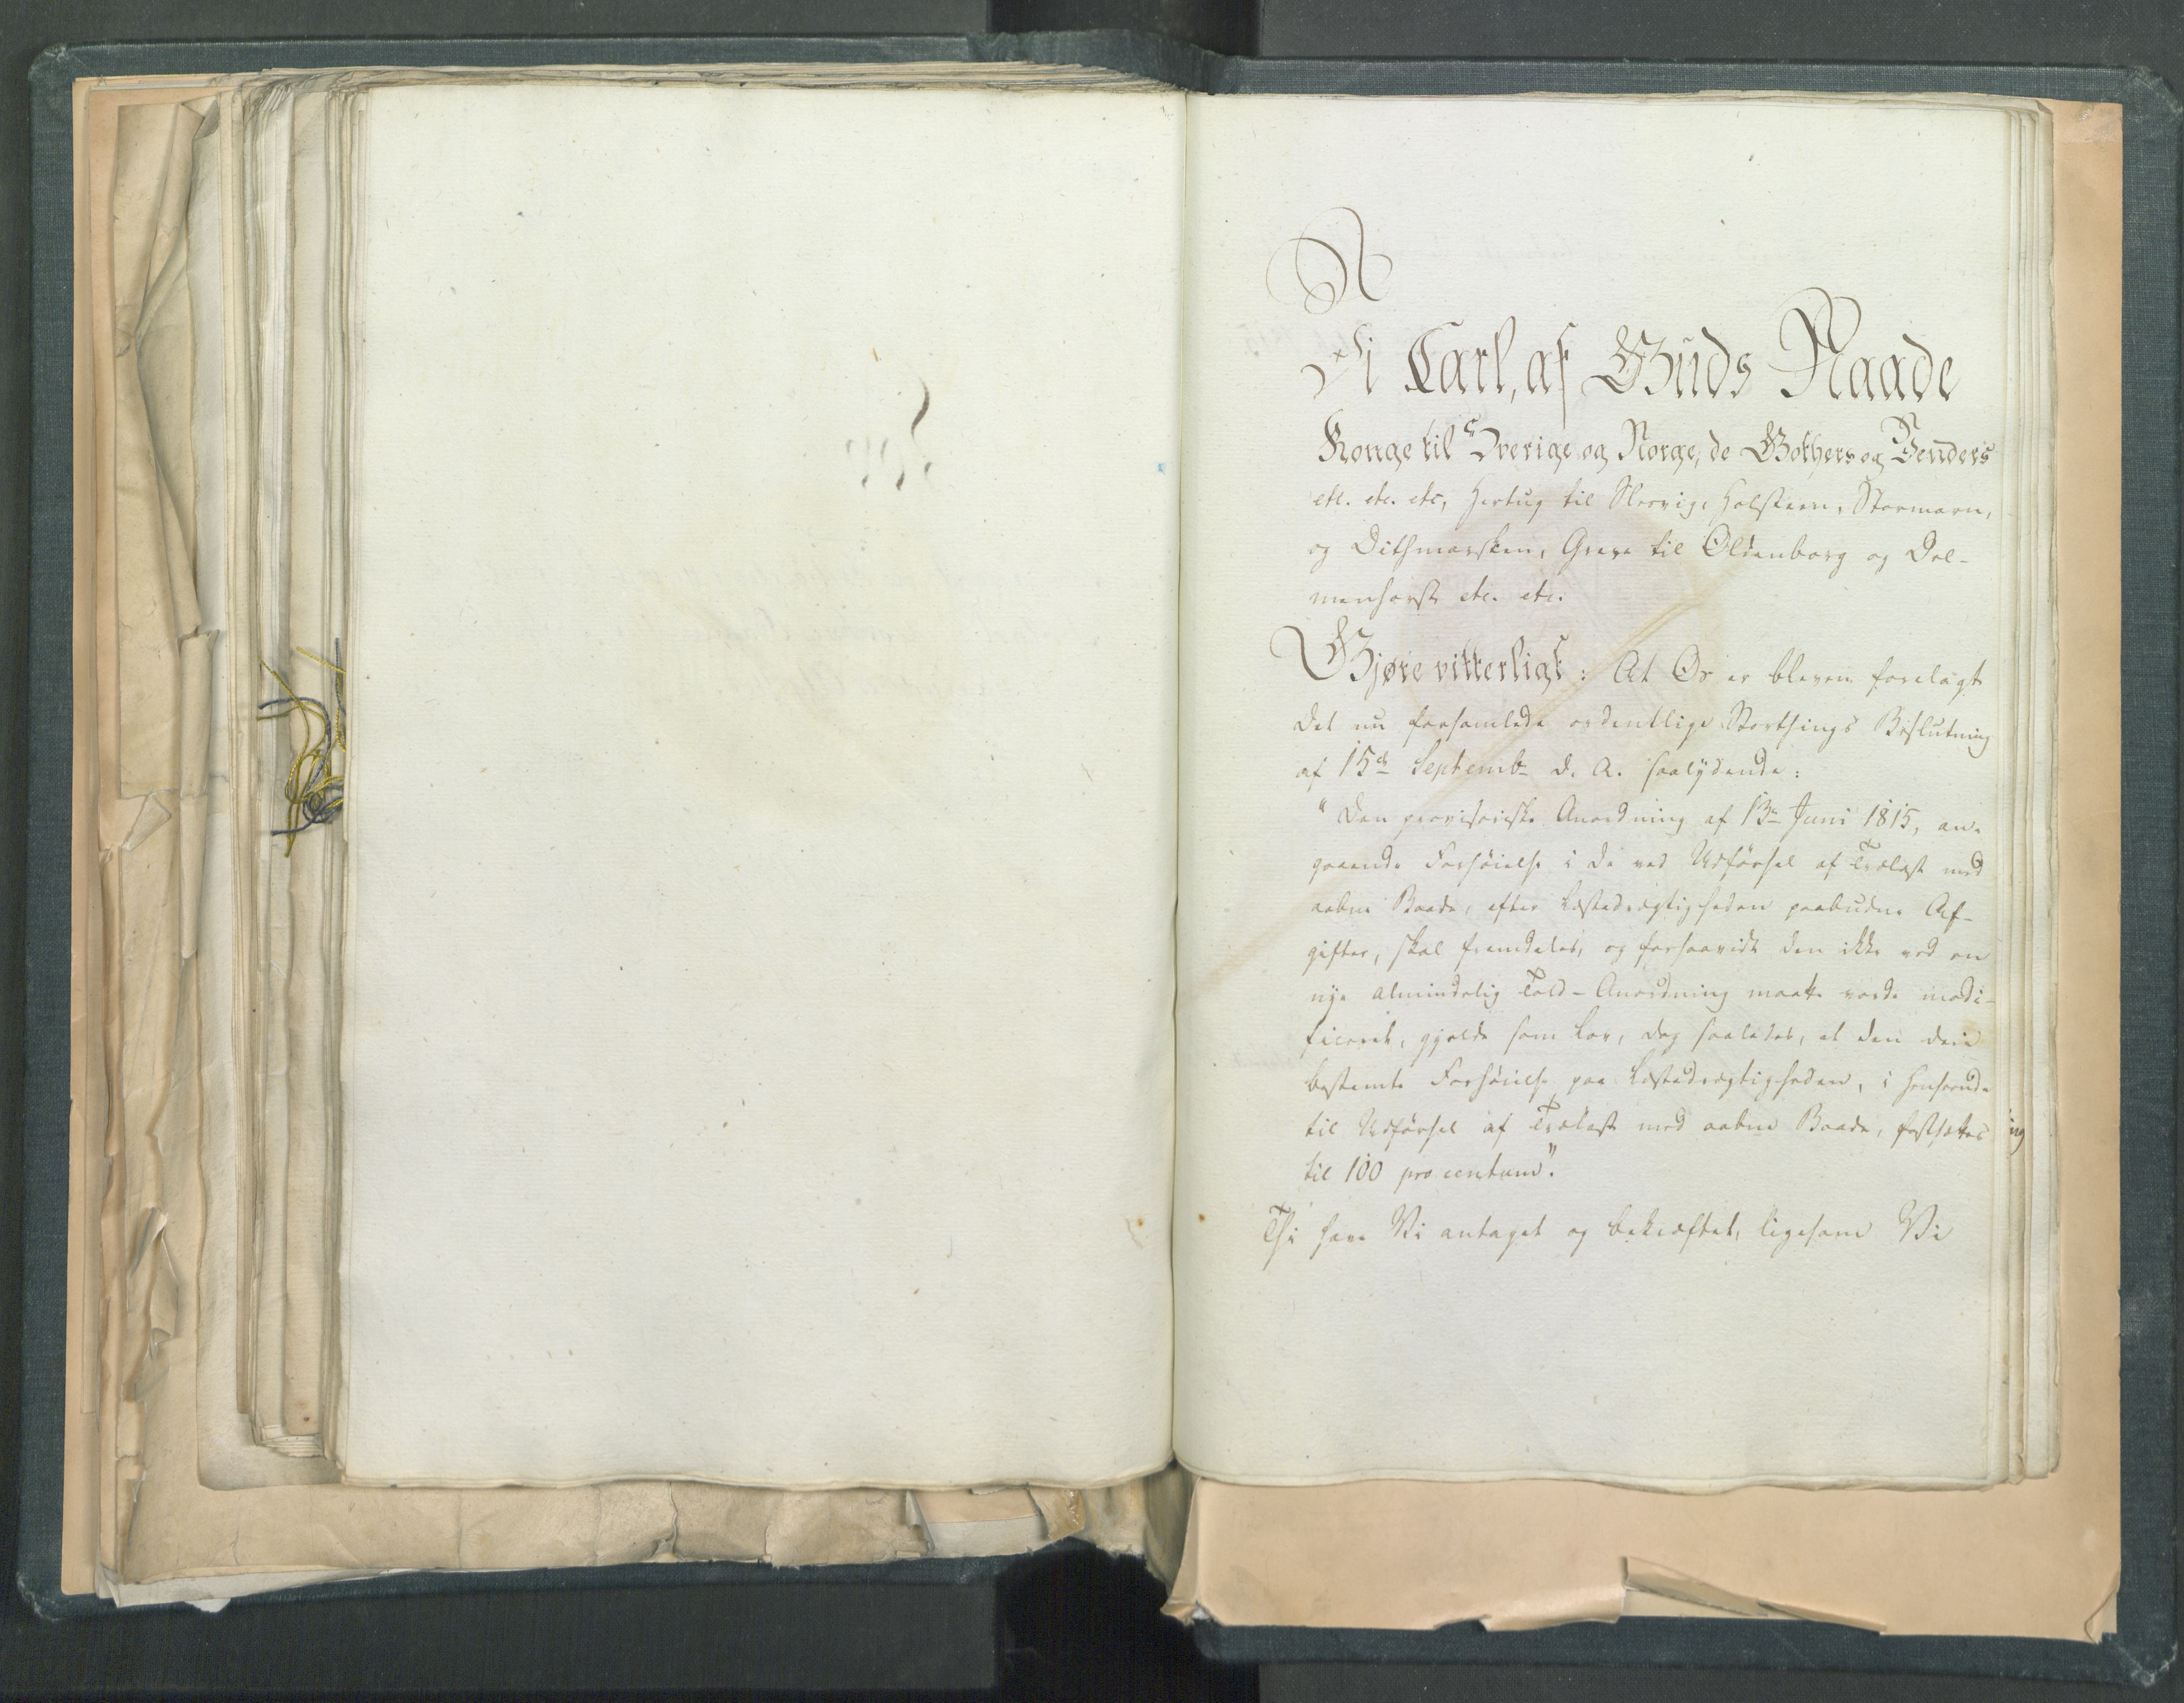 Vi Carl, af Guds Naade
Konge til Sverige og Norge, de Gothers og Venders
etc. etc. etc, Hertug til Slesvig, Holsteen, Stormarn,
og Dithmarsken, Greve til Oldenborg og Del-
menhorst etc. etc.
Gjøre vitterligt: At Os er bleven forelagt
det nu forsamlede ordentlige Storthings Beslutning
af 15de Septembr d. A. saalydende:
"Den provisoriske Anordning af 13de Juni 1815, an-
gaaende Forhøielse i de ved Udførsel af Trælast med
aabne Baade, efter Læstedrægtigheden paabudne Af-
gifter, skal fremdeles, og forsaavidt den ikke ved en
nye almindelig Told-Anordning maatte vorde modi-
ficeret, gjelde som Lov, dog saaledes, at den deri
bestemte Forhøielse paa Læstedrægtigheden, i Henseende
til Udførsel af Trælast med aabne Baade, fastsættes
til 100 pro centum".
Thi have Vi antaget og bekræftet, ligesom Vi